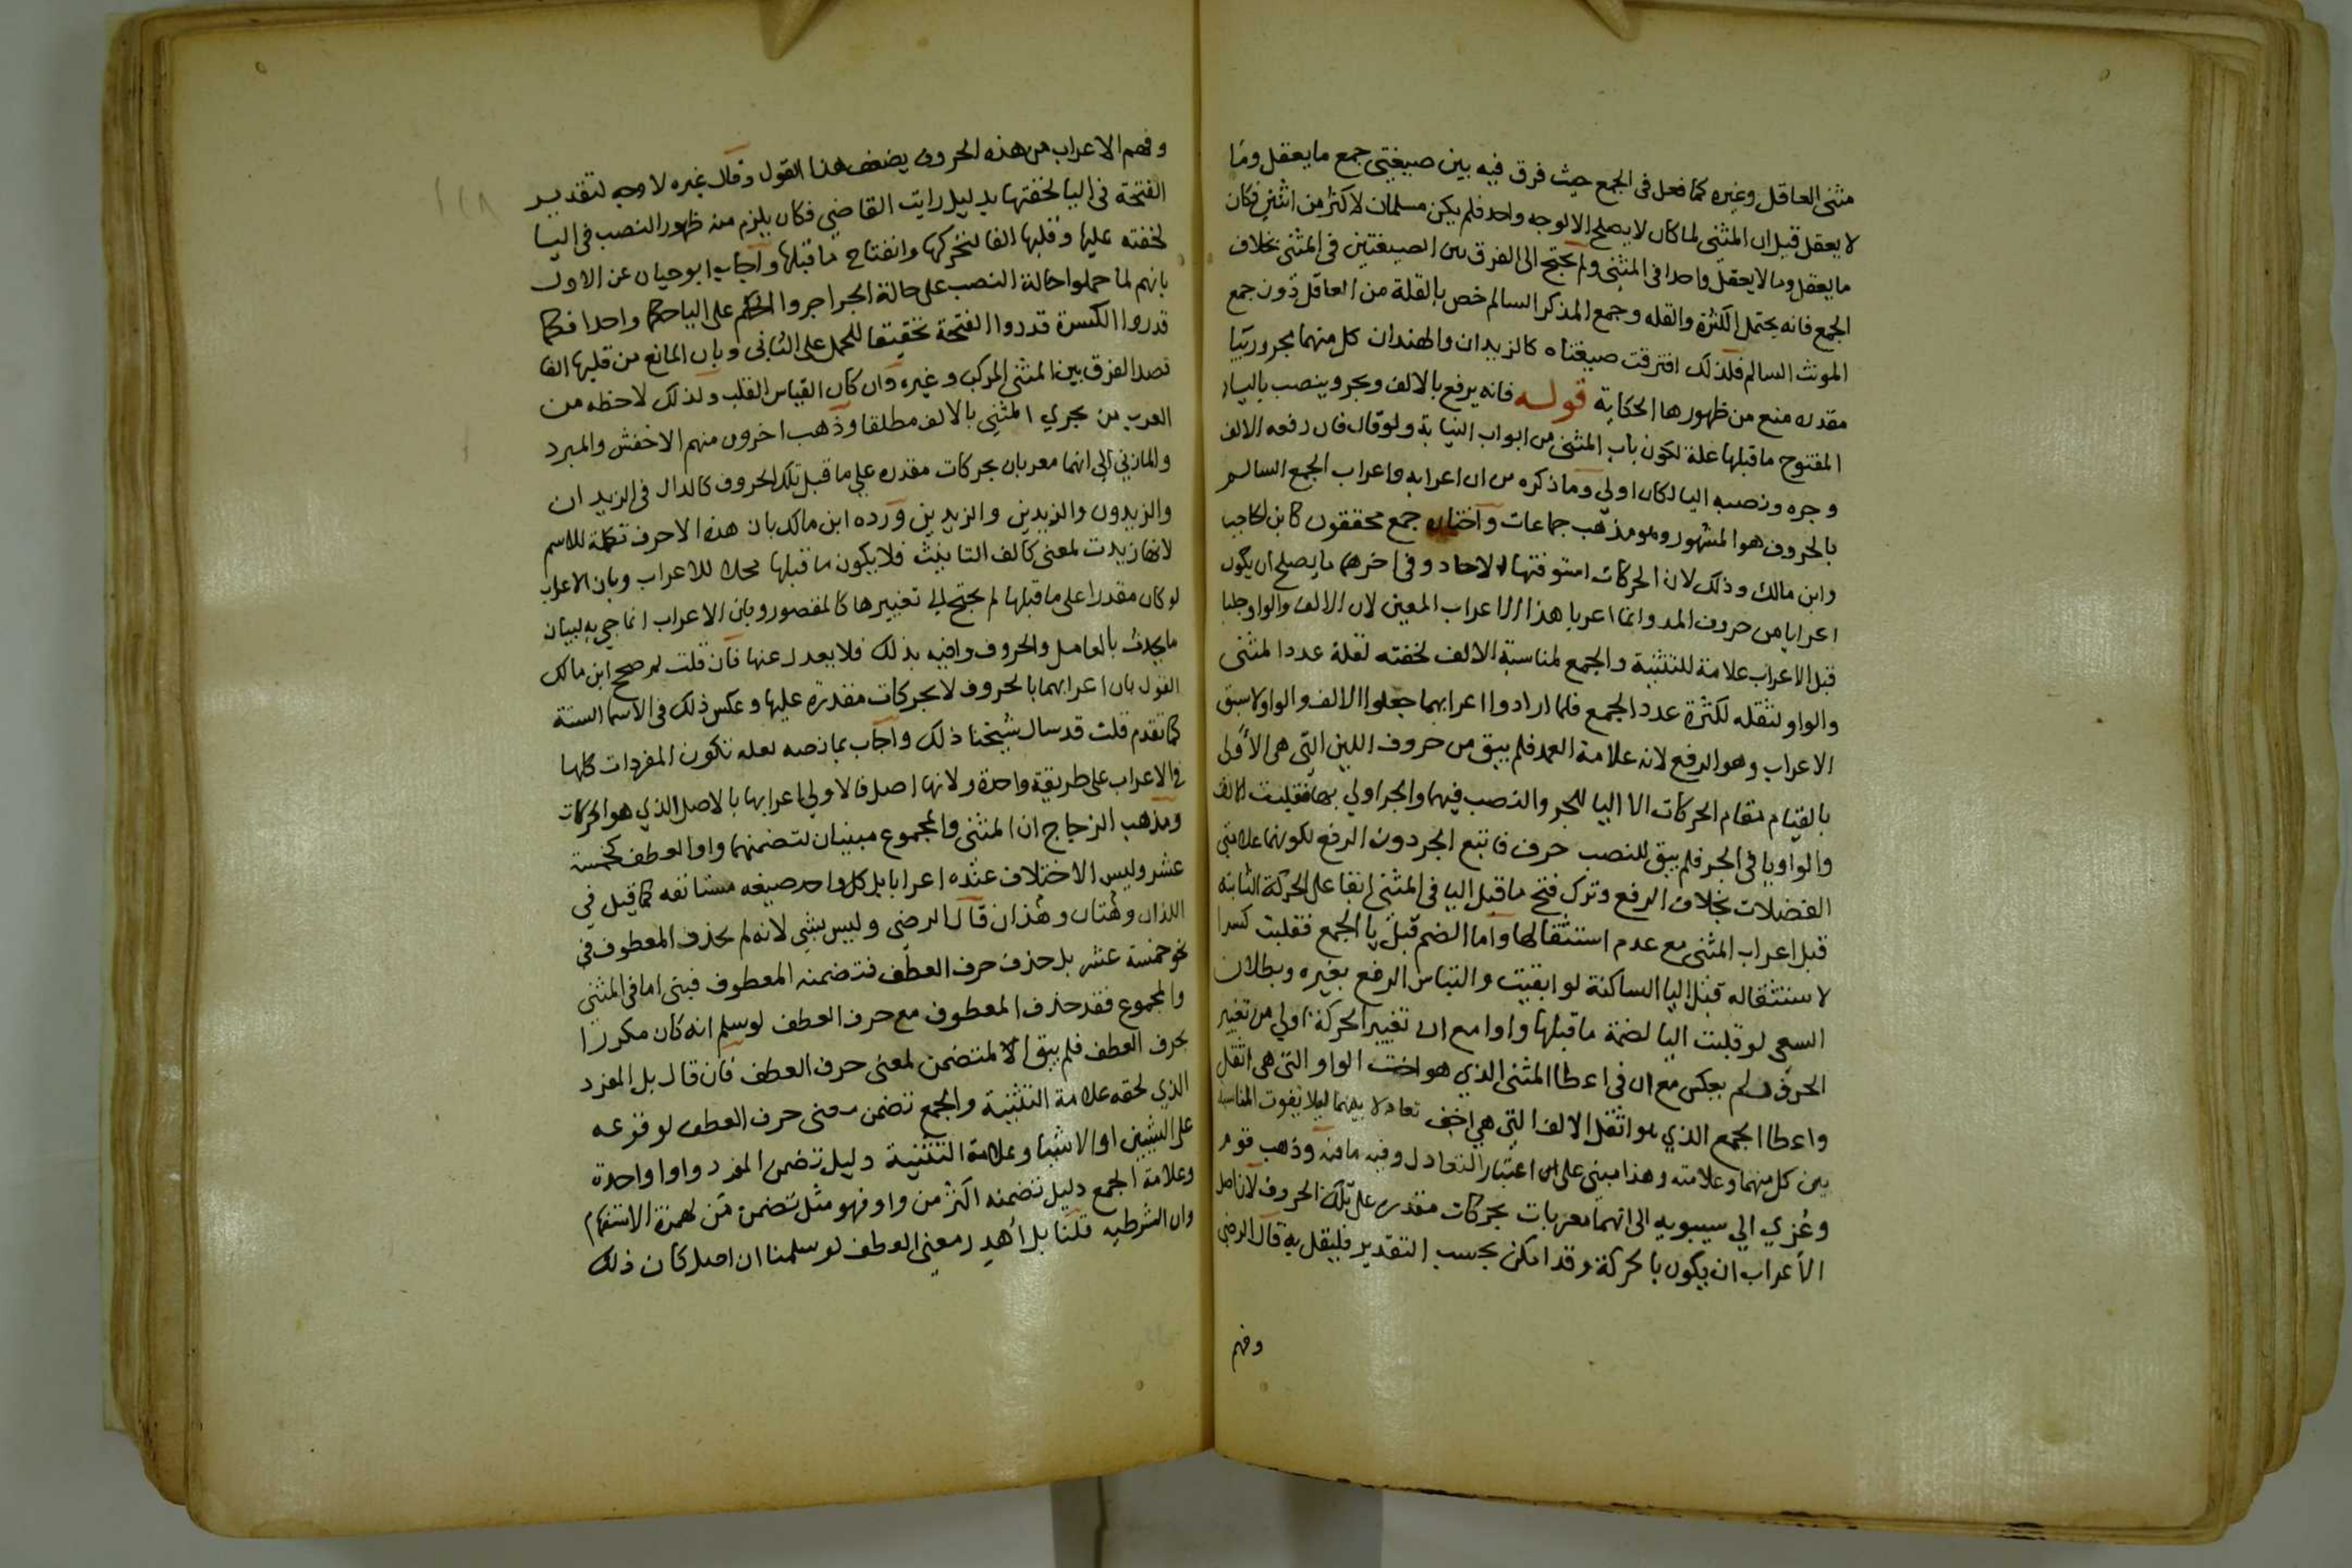 مثنى العاقل وغيره كما فعل فى الجمع حيث فرق فيه بين صيغتى جمع ما يعقل وما
لا يعقل قيل ان المثنى لما كان لا يصلح الا لوجه واحد فلم يكن مسلمان لاكثر من اثنين فكان
ما يعقل وما لا يعقل واحدا فى المثنى ولم يحتج الى الفرق بين الصيغتين فى المثنى بخلاف
الجمع فانه يحتمل الكثرة والقله وجمع المذكر السالم خص بالقلة من العاقل دون جمع
المونث السالم فلذلك افترقت صيغتاه كالزيدان والهندان كل منهما مجرور بيا
مقدره منع من ظهورها الحكاية قوله فانه يرفع بالالف ويجر وينصب باليا
المفتوح ما قبلها علة لكون باب المثنى من ابواب النيابة ولو قال فان رفعه الالف
وجره ونصبه اليا لكان اولي وما ذكره من ان اعرابه واعراب الجمع السالم
بالحروف هو المشهور وهو مذهب جماعات واختاره جمع محققون كابن الحاجب
وابن مالك وذلك لان الحركات استوفتها الاحاد وفى اخرهما ما يصلح ان يكون
اعرابا من حروف المد وانما اعربا هذا الاعراب المعين لان الالف والواو جلبا
قبل الاعراب علامة للتثنية والجمع لمناسبة الالف لخفته لقلة عدد المثنى
والواو لثقله لكثرة عدد الجمع فلما ارادوا اعرابهما جعلوا الالف والواو لاسبق
الاعراب وهو الرفع لانه علامة العمد فلم يبق من حروف اللين التى هى الأولى
بالقيام مقام الحركات الا اليا للجر والنصب فيهما والجر اولي بها فقلبت الالف
والواو يا فى الجر فلم يبق للنصب حرف فاتبع الجر دون الرفع لكونهما علامتى
الفضلات بخلاف الرفع وترك فتح ما قبل اليا فى المثنى ابقا على الحركة الثابته
قبل اعراب المثنى مع عدم استثقالها واما الضم قبل يا الجمع فقلبت كسرا
لاستثقاله قبل اليا الساكنة لو ابقيت والتباس الرفع بغيره وبطلان
السعى لو قلبت اليا لضمة ما قبلها واوا مع ان تغيير الحركة اولي من تغيير
الحرف ولم يعكس مع ان فى اعطا المثنى الذي هو اخف الواو التى هى اثقل
واعطا الجمع الذي هو اثقل الالف التى هي اخف تعادلا بينهما ليلا يفوت المناسبة
بين كل منهما وعلامته وهذا مبنى على ان اعتبار التعادل وفيه ما فيه وذهب قوم
وعُزي الي سيبويه الى انهما معربات بحركات مقدره على تلك الحروف لان اصل
الاعراب ان يكون بالحركة وقد امكن بحسب التقدير فليقل به قال الرضى
وفهم
وفهم الاعراب من هذه الحروف يضعف هذا القول وقال غيره لا وجه لتقدير
الفتحة فى اليا لخفتها بدليل رايت القاضي فكان يلزم منه ظهور النصب فى اليا
لخفته عليها وقلبها الفا لتحركها وانفتاح ما قبلها واجاب ابو حيان عن الاول
بانهم لما حملوا حالة النصب على حالة الجر اجروا الحكم على اليا حكما واحدا فكما
قدروا الكسرة قدروا الفتحة تحقيقا للحمل على الثانى وبان المانع من قلبها الفا
قصد الفرق بين المثنى المركب وغيره وان كان القياس القلب ولذلك لاحظه من
العرب من يجري المثني بالالف مطلقا وذهب اخرون منهم الاخفش والمبرد
والمازني الي انهما معربان بحركات مقدره علي ما قبل تلك الحروف كالدال فى الزيدان
والزيدون والزيدين والزيدين ورده ابن مالك بان هذه الاحرف تكملة للاسم
لانها زيدت لمعنى كالف التانيث فلا يكون ما قبلها محلا للاعراب وبان الاعراب
لو كان مقدرا على ما قبلها لم يحتج الي تغييرها كالمقصور وبان الاعراب انما جي به لبيان
ما يحدث بالعامل والحروف وافيه بذلك فلا يعدل عنها فان قلت لم صحح ابن مالك
القول بان اعرابهما بالحروف لا بحركات مقدرة عليها وعكس ذلك فى الاسما الستة
كما تقدم قلت قد سال شيخنا ذلك واجاب بما نصه لعله لتكون المفردات كلها
فى الاعراب على طريقة واحدة ولانها اصل فالاولي اعرابها بالاصل الذي هو الحركات
ومذهب الزجاج ان المثنى والمجموع مبنيان لتضمنهما واو العطف كخمسة
عشر وليس الاختلاف عنده اعرابا بل كل واحد صيغه مستانفه كما قيل في
اللذان وهتان وهذان قال الرضى وليس بشي لانه لم يحذف المعطوف فى
نحو خمسة عشر بل حذف حرف العطف فتضمنه المعطوف فبنى اما فى المثنى
والمجموع فقد حذف المعطوف مع حرف العطف لو سلم انه كان مكررا
بحرف العطف فلم يبق الا المتضمن لمعنى حرف العطف فان قال بل المفرد
الذي لحقه علامة التثنية والجمع تضمن معنى حرف العطف لوقوعه
على الشيين او الاشيا وعلامة التثنية دليل تضمن المفرد واوا واحدة
وعلامة الجمع دليل تضمنه اكثر من واو فهو مثل تضمن مَن لهمزة الاستفهام
وان الشرطيه قلنا بل أُهدِر معنى العطف لو سلمنا ان اصله كان ذلك